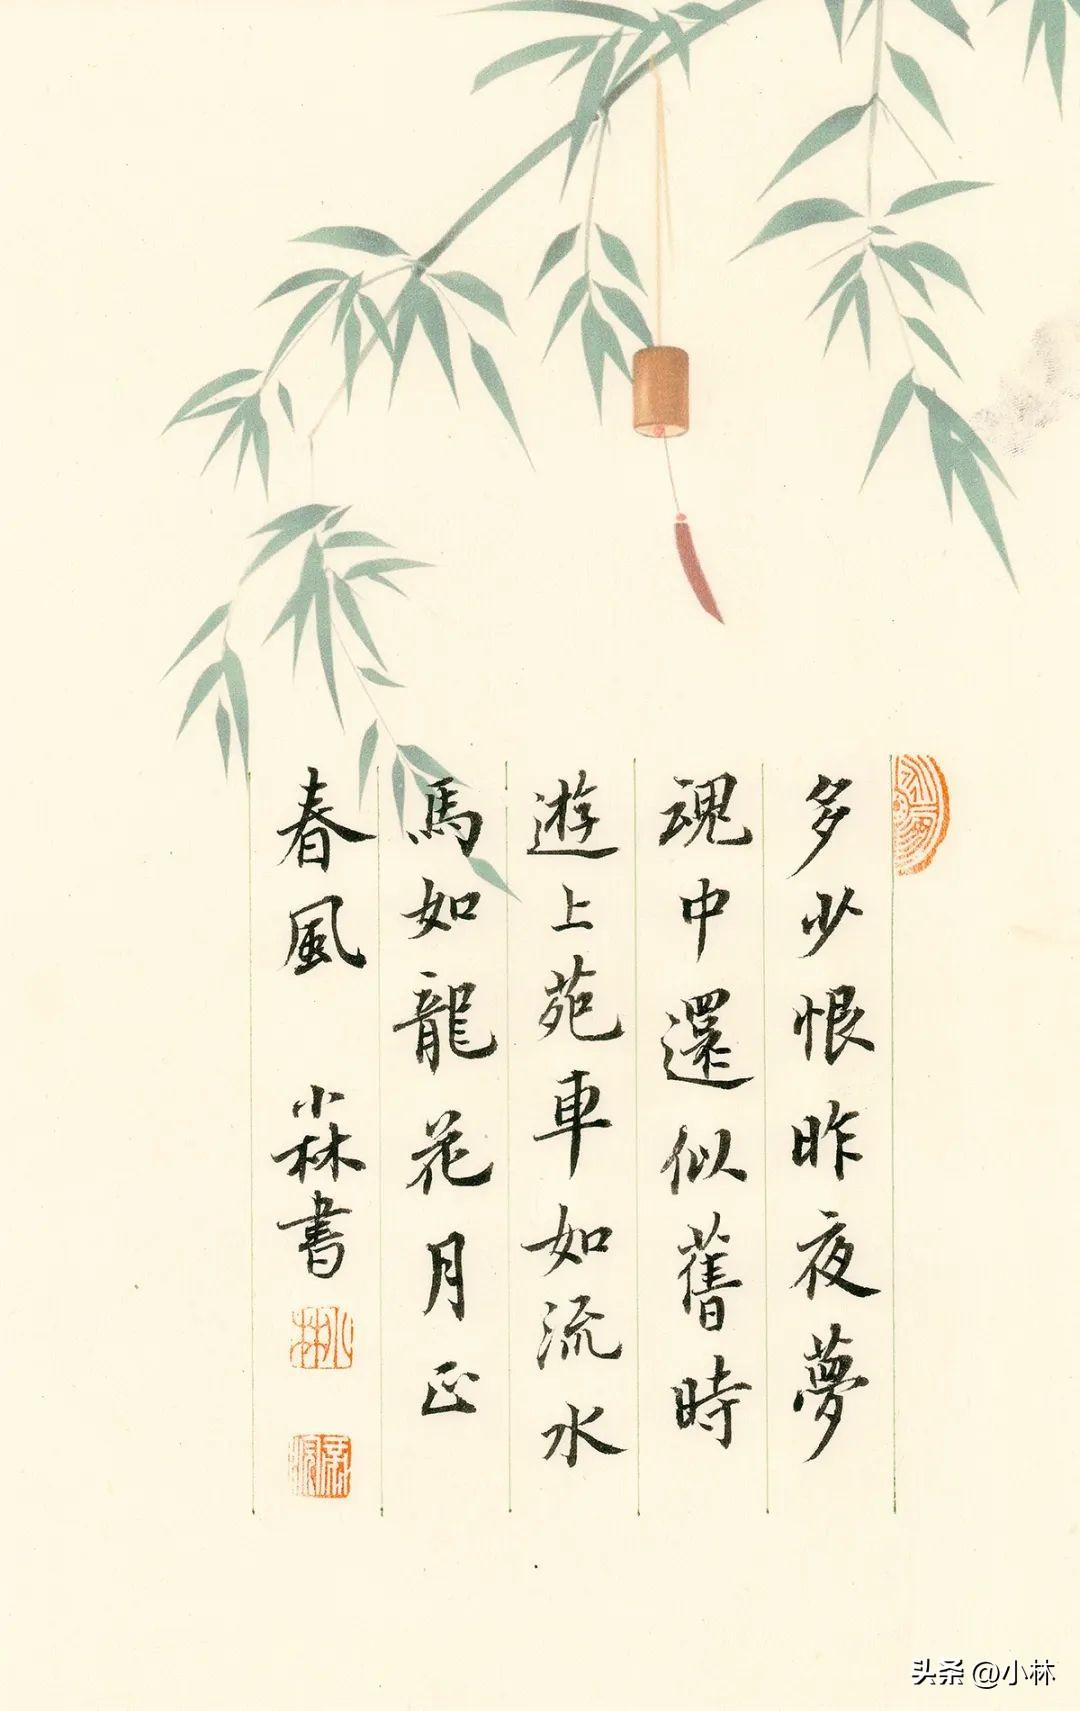 多少恨昨夜夢
魂中還似舊時
遊上苑車如流水
馬如龍花月正
春風 小林書
小林
头条 @小林